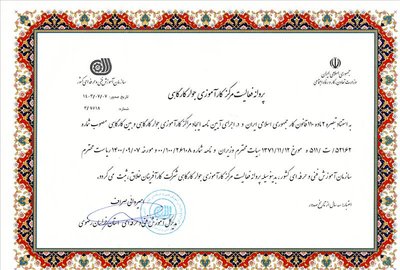 جمهوری اسلامی ایران
وزارت تعاون، کار و رفاه اجتماعی
سازمان آموزش فنی و حرفه ای کشور
تاریخ صدور: ۱۴۰۳/۰۷/۰۷
شماره: ۳/۹۷۱۸
پروانه فعالیت مرکز کارآموزی جوار کارگاهی
به استناد تبصره ۲ ماده ۱۱۰ قانون کار جمهوری اسلامی ایران و در اجرای آیین نامه ایجاد مراکز کارآموزی جوار کارگاهی و بین کارگاهی مصوب شماره
۵۲۱۶۲/ت۵۱۱ه مورخ ۱۳۷۱/۱۱/۱۲ هیات محترم وزیران و نامه شماره ۶۰۰/۱۰۰/۲۶۱۰۸ مورخه ۱۴۰۰/۰۹/۰۷ ریاست محترم
سازمان آموزش فنی و حرفه ای کشور، بدینوسیله پروانه فعالیت مرکز کارآموزی جوار کارگاهی شرکت کارآفرینان خلاق رثبت می گردد.
اعتبار: سه سال از تاریخ صدور
مدیرکل آموزش فنی و حرفه ای استان خراسان رضوی